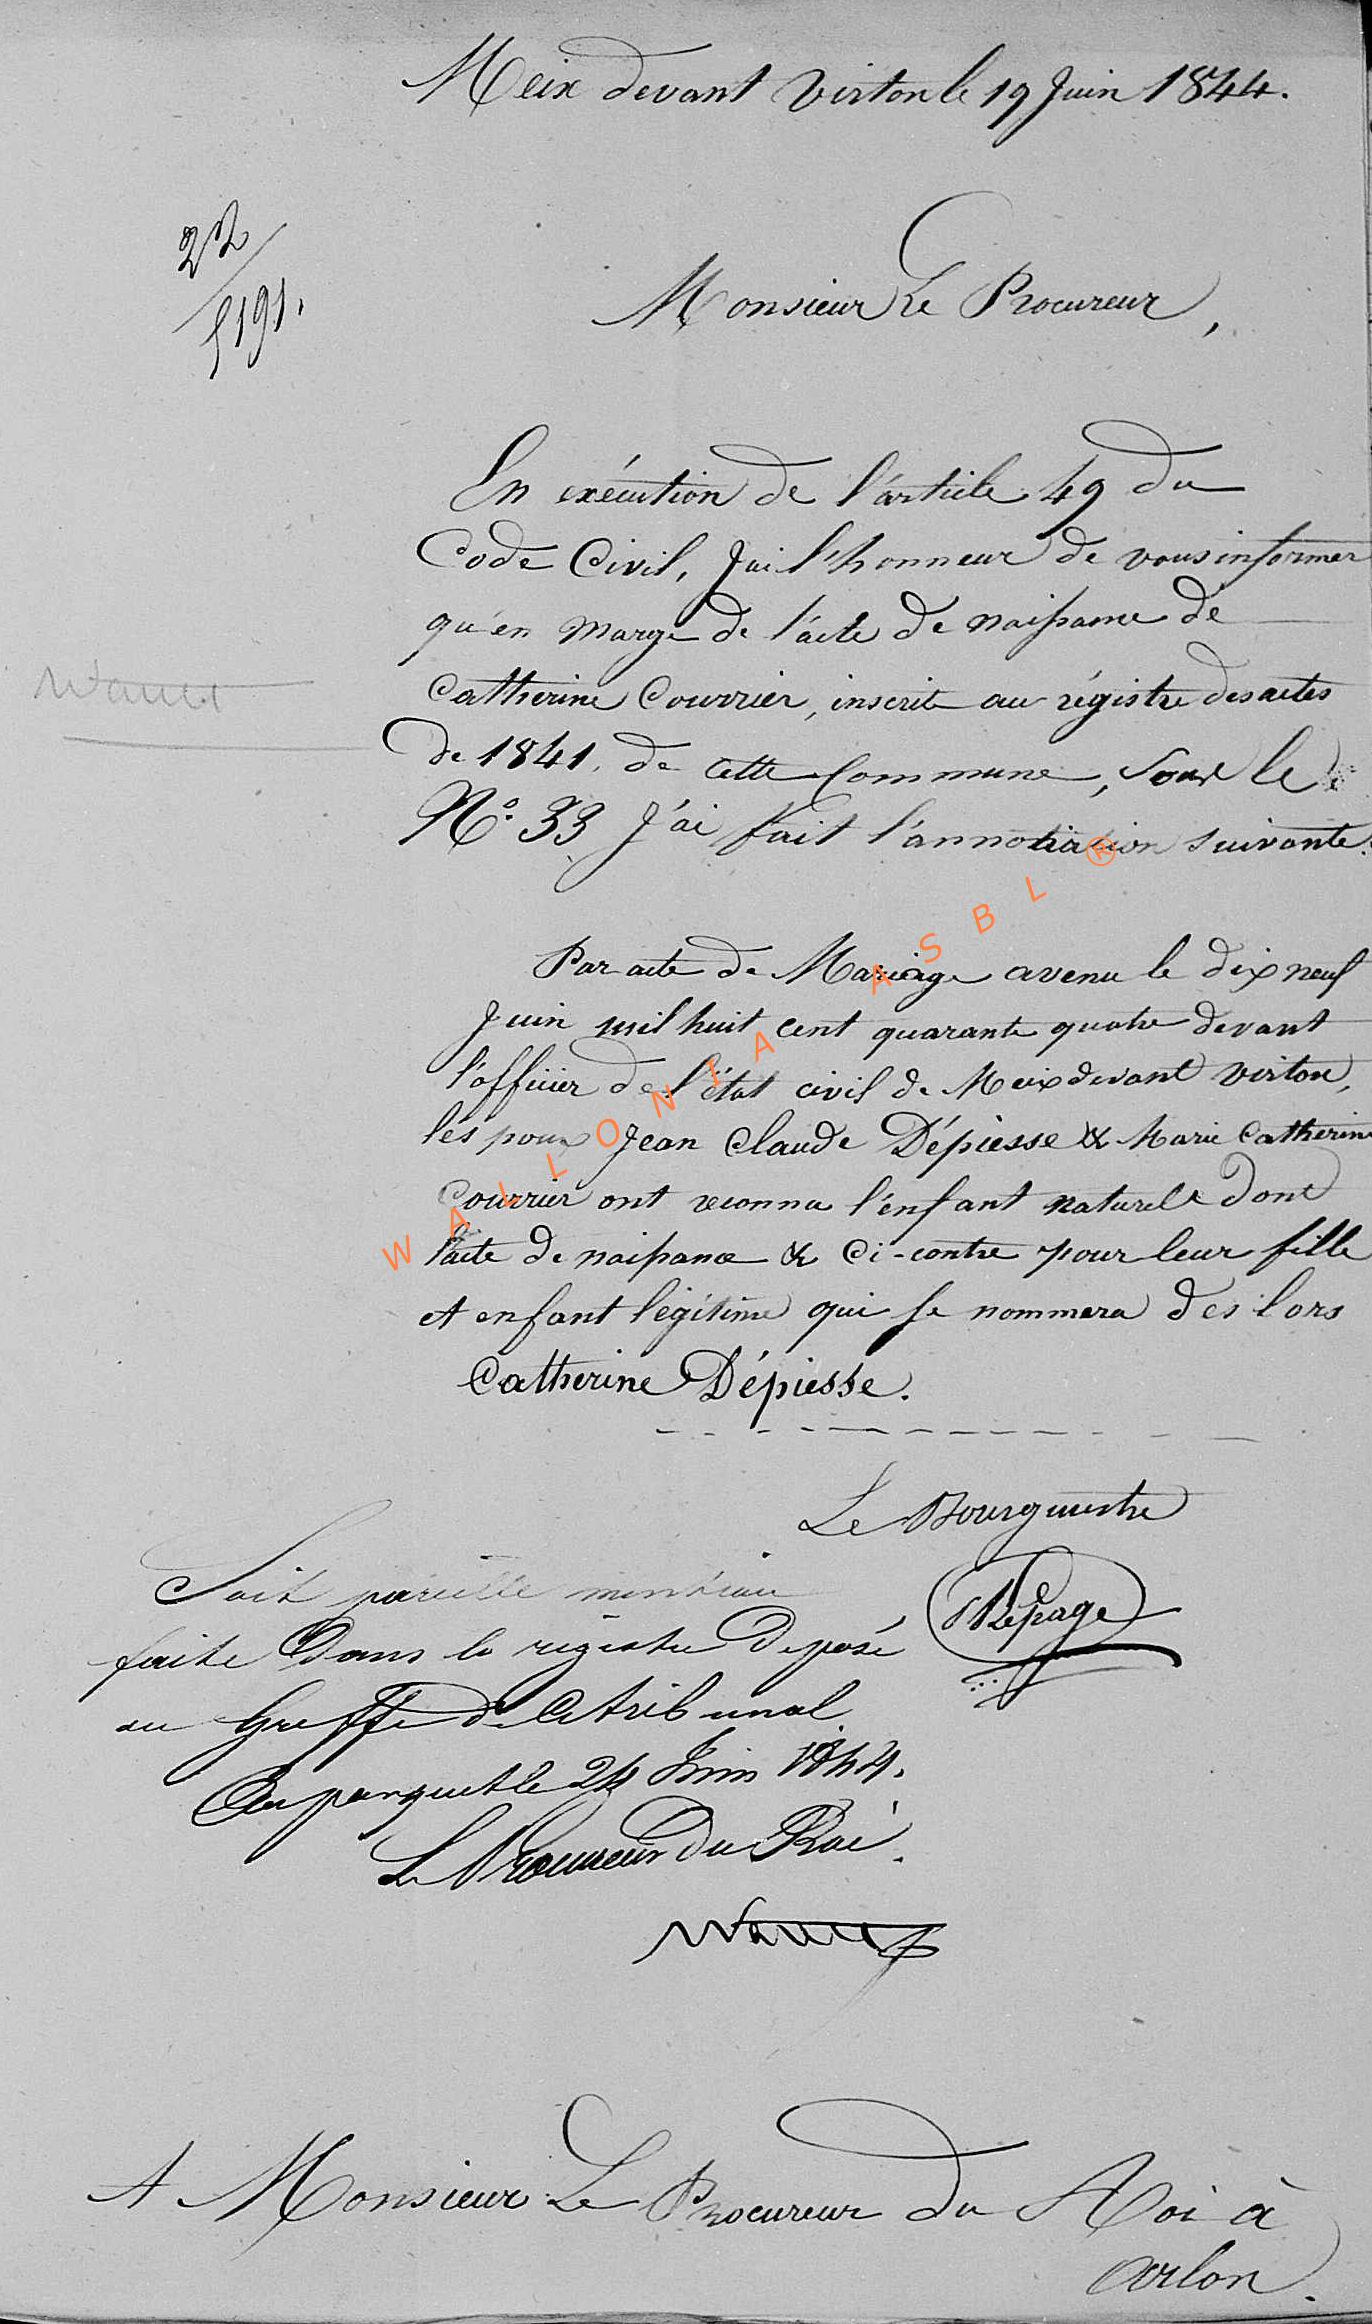 Meix devant Virton le 19 Juin 1844.
22
5191.
Monsieur Le Procureur,
En exécution de l'article 49 du
Code Civil, J'ai l'honneur de vous informer
qu'en marge de l'acte de naissance de
Catherine Courrier, inscrit au régistre des actes
de 1841. de cette Commune, sous le
N°. 33 J'ai fait l'annotation suivante:
Par acte de Mariage avenu le dix neuf
Juin mil huit cent quarante quatre devant
l'officier de l'état civil de Meix devant Virton,
les époux Jean Claude Dépiesse & Marie Catherine
Courrier ont reconnu l'enfant naturel dont
l'acte de naissance & ci-contre pour leur fille
et enfant légitime qui se nommera dès lors
Catherine Dépiesse.
Le Bourgmestre
Lepage
Soit pareille mention
faite dans le régistre déposé
au Greffe de ce tribunal
Au parquet le 24 Juin 1844.
Le Procureur du Roi.
A Monsieur Le Procureur du Roi à
Arlon.
WALLONIA ASBL ®